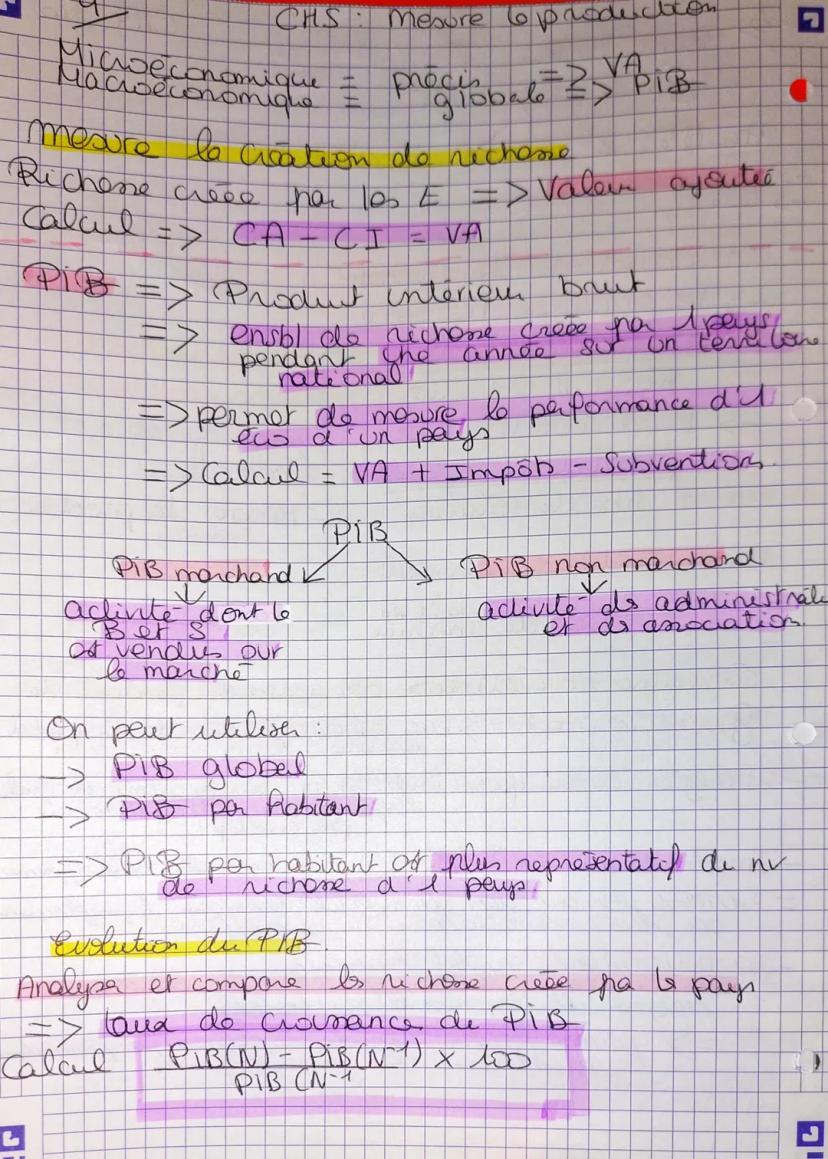 CH5 : Mesure la production
Microéconomique = précis => VA
Macroéconomique = global => PiB
Mesure la création de richesse
Richesse créée par les E => Valeur ajoutée
Calcul => CA - CI = VA
PiB => Produit intérieur brut
=> ensbl de richesse créée par 1 pays
pendant une année sur un territoire
national
=> permet de mesure la performance d'1
éco d'un pays
=> Calcul = VA + Impôts - Subventions
PiB
PiB marchand
PiB non marchand
activité dont le
B et S
est vendus sur
le marché
activité ds administrati
et ds association
On peut utiliser :
-> PiB global
-> PiB par habitant
=> PiB par habitant est plus représentatif du nv
de richesse d'1 pays
Evolution du PIB
Analyser et compare les richesse créée par le pays
=> taux de croissance de PiB
Calcul PiB(N) - PiB(N-1) x 100
PiB (N-1